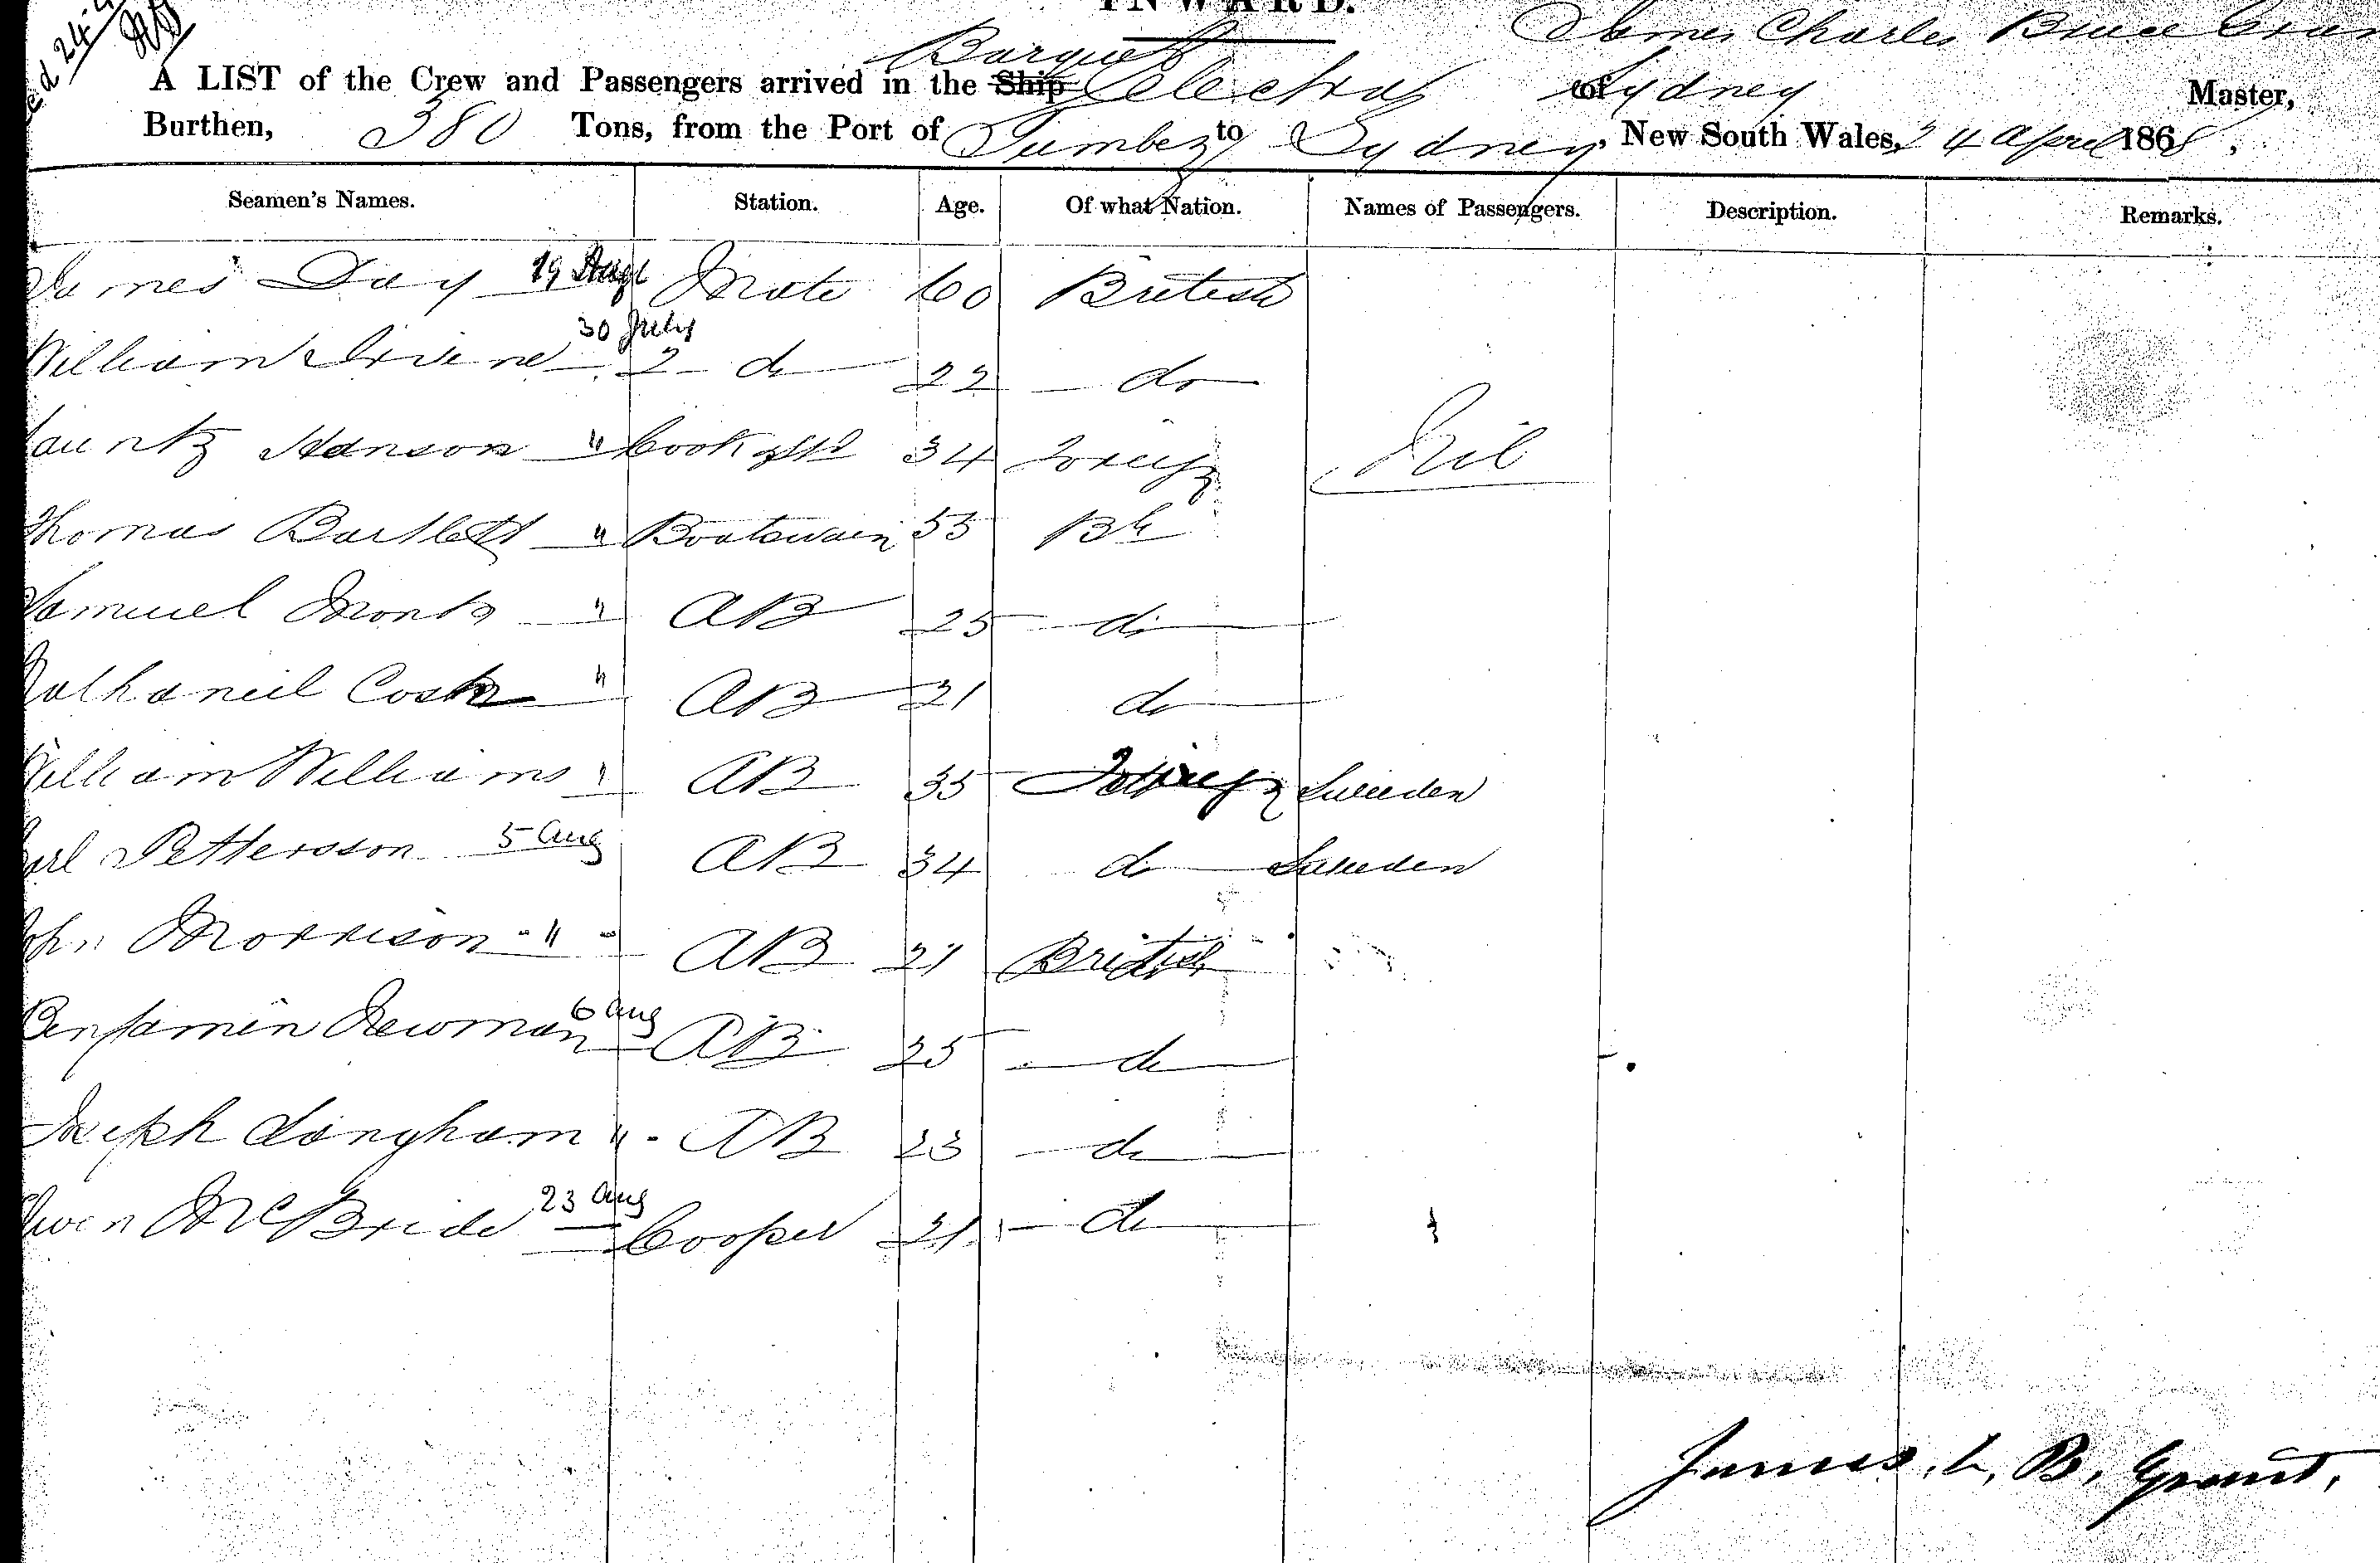 INWARD.
James Charles Bruce Gran
Barque
A LIST of the Crew and Passengers arrived in the Ship Electra of Sydney Master,
Burthen, 380 Tons, from the Port of Tumbez to Sydney, New South Wales, 24 April 1868.
Seamen's Names. Station. Age. Of what Nation. Names of Passengers. Description. Remarks.
James Day 19 Augt Mate 60 British
William Irvine 30 July 2 do 22 do
Hanson " Cook & Std 34 Foreign Nil
Thomas Bartlett " Boatswain 53 Bh
Samuel Monk " AB 25 do
Nathaneil Cosk " AB 21 do
William Williams " AB 35 Foreign Sweeden
Carl Pettersson 5 Aug AB 34 do Sweeden
John Morrison " AB 21 British
Benjamin Newman 6 Aug AB 25 do
Joseph Langham " AB 23 do
Owen McBride 23 Aug Cooper 21 do
James. C. B. Grant.